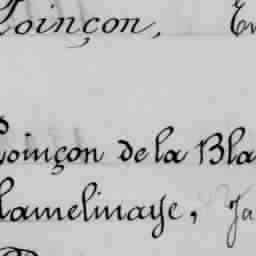 Poinçon, En
Poinçon de la Bla
lamelinaye, Ja